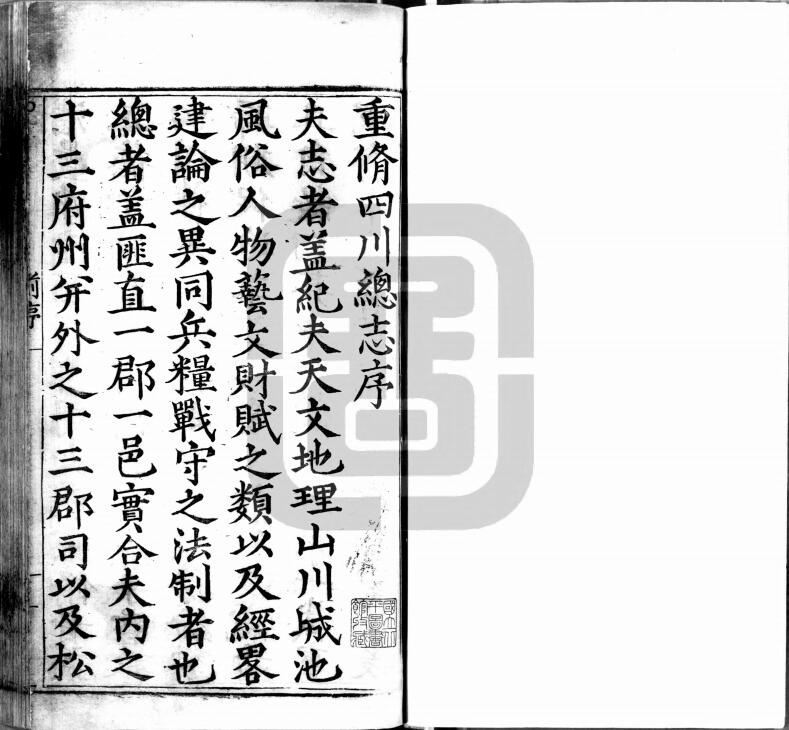 重脩四川總志序
夫志者盖紀夫天文地理山川城池
風俗人物藝文財賦之類以及經畧
建論之異同兵糧戰守之法制者也
總者盖匪直一郡一邑實合夫內之
十三府州并外之十三郡司以及松
前序
國立北
平圖書
館收藏